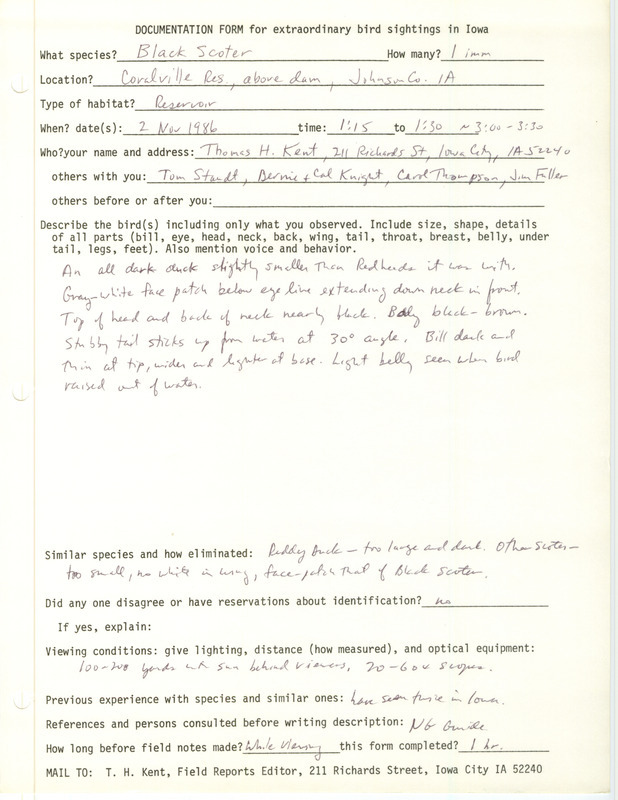 DOCUMENTATION FORM for extraordinary bird sightings in Iowa
What species? Black Scoter How many? 1 imm
Location? Coralville Res., above dam, Johnson Co. IA
Type of habitat? Reservoir
When? date(s): 2 Nov 1986 time: 1:15 to 1:30 ~ 3:00 - 3:30
Who?your name and address: Thomas H. Kent, 211 Richards St, Iowa City, IA 52240
others with you: Tom Staudt, Bernie + Cal Knight, Carol Thompson, Jim Fuller
others before or after you:
Describe the bird(s) including only what you observed. Include size, shape, details
of all parts (bill, eye, head, neck, back, wing, tail, throat, breast, belly, under
tail, legs, feet). Also mention voice and behavior.
An all dark duck slightly smaller than Redheads it was with.
Gray-white face patch below eye line extending down neck in front.
Top of head and back of neck nearly black. Body black-brown.
Stubby tail sticks up from water at 30° angle. Bill dark and
thin at tip, wider and lighter at base. Light belly seen when bird
raised out of water.
Similar species and how eliminated: Ruddy Duck — too large and dark. Other scoters —
too small, no white in wing, face-patch that of Black Scoter.
Did any one disagree or have reservations about identification? no
If yes, explain:
Viewing conditions: give lighting, distance (how measured), and optical equipment:
100-200 yards with sun behind viewers, 20-60x scopes.
Previous experience with species and similar ones: have seen twice in Iowa.
References and persons consulted before writing description: NG Guide
How long before field notes made? While viewing this form completed? 1 hr.
MAIL TO: T. H. Kent, Field Reports Editor, 211 Richards Street, Iowa City IA 52240